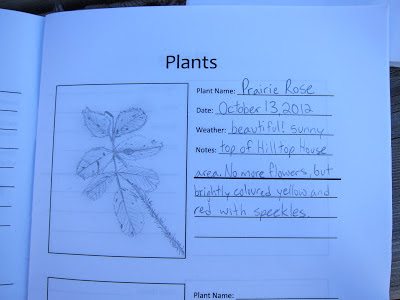 Plants
Plant Name: Prairie Rose
Date: October 13, 2012
Weather: beautiful! sunny
Notes: top of Hilltop House
area. No more flowers, but
brightly coloured yellow and
red with speckles.
Plant Name: